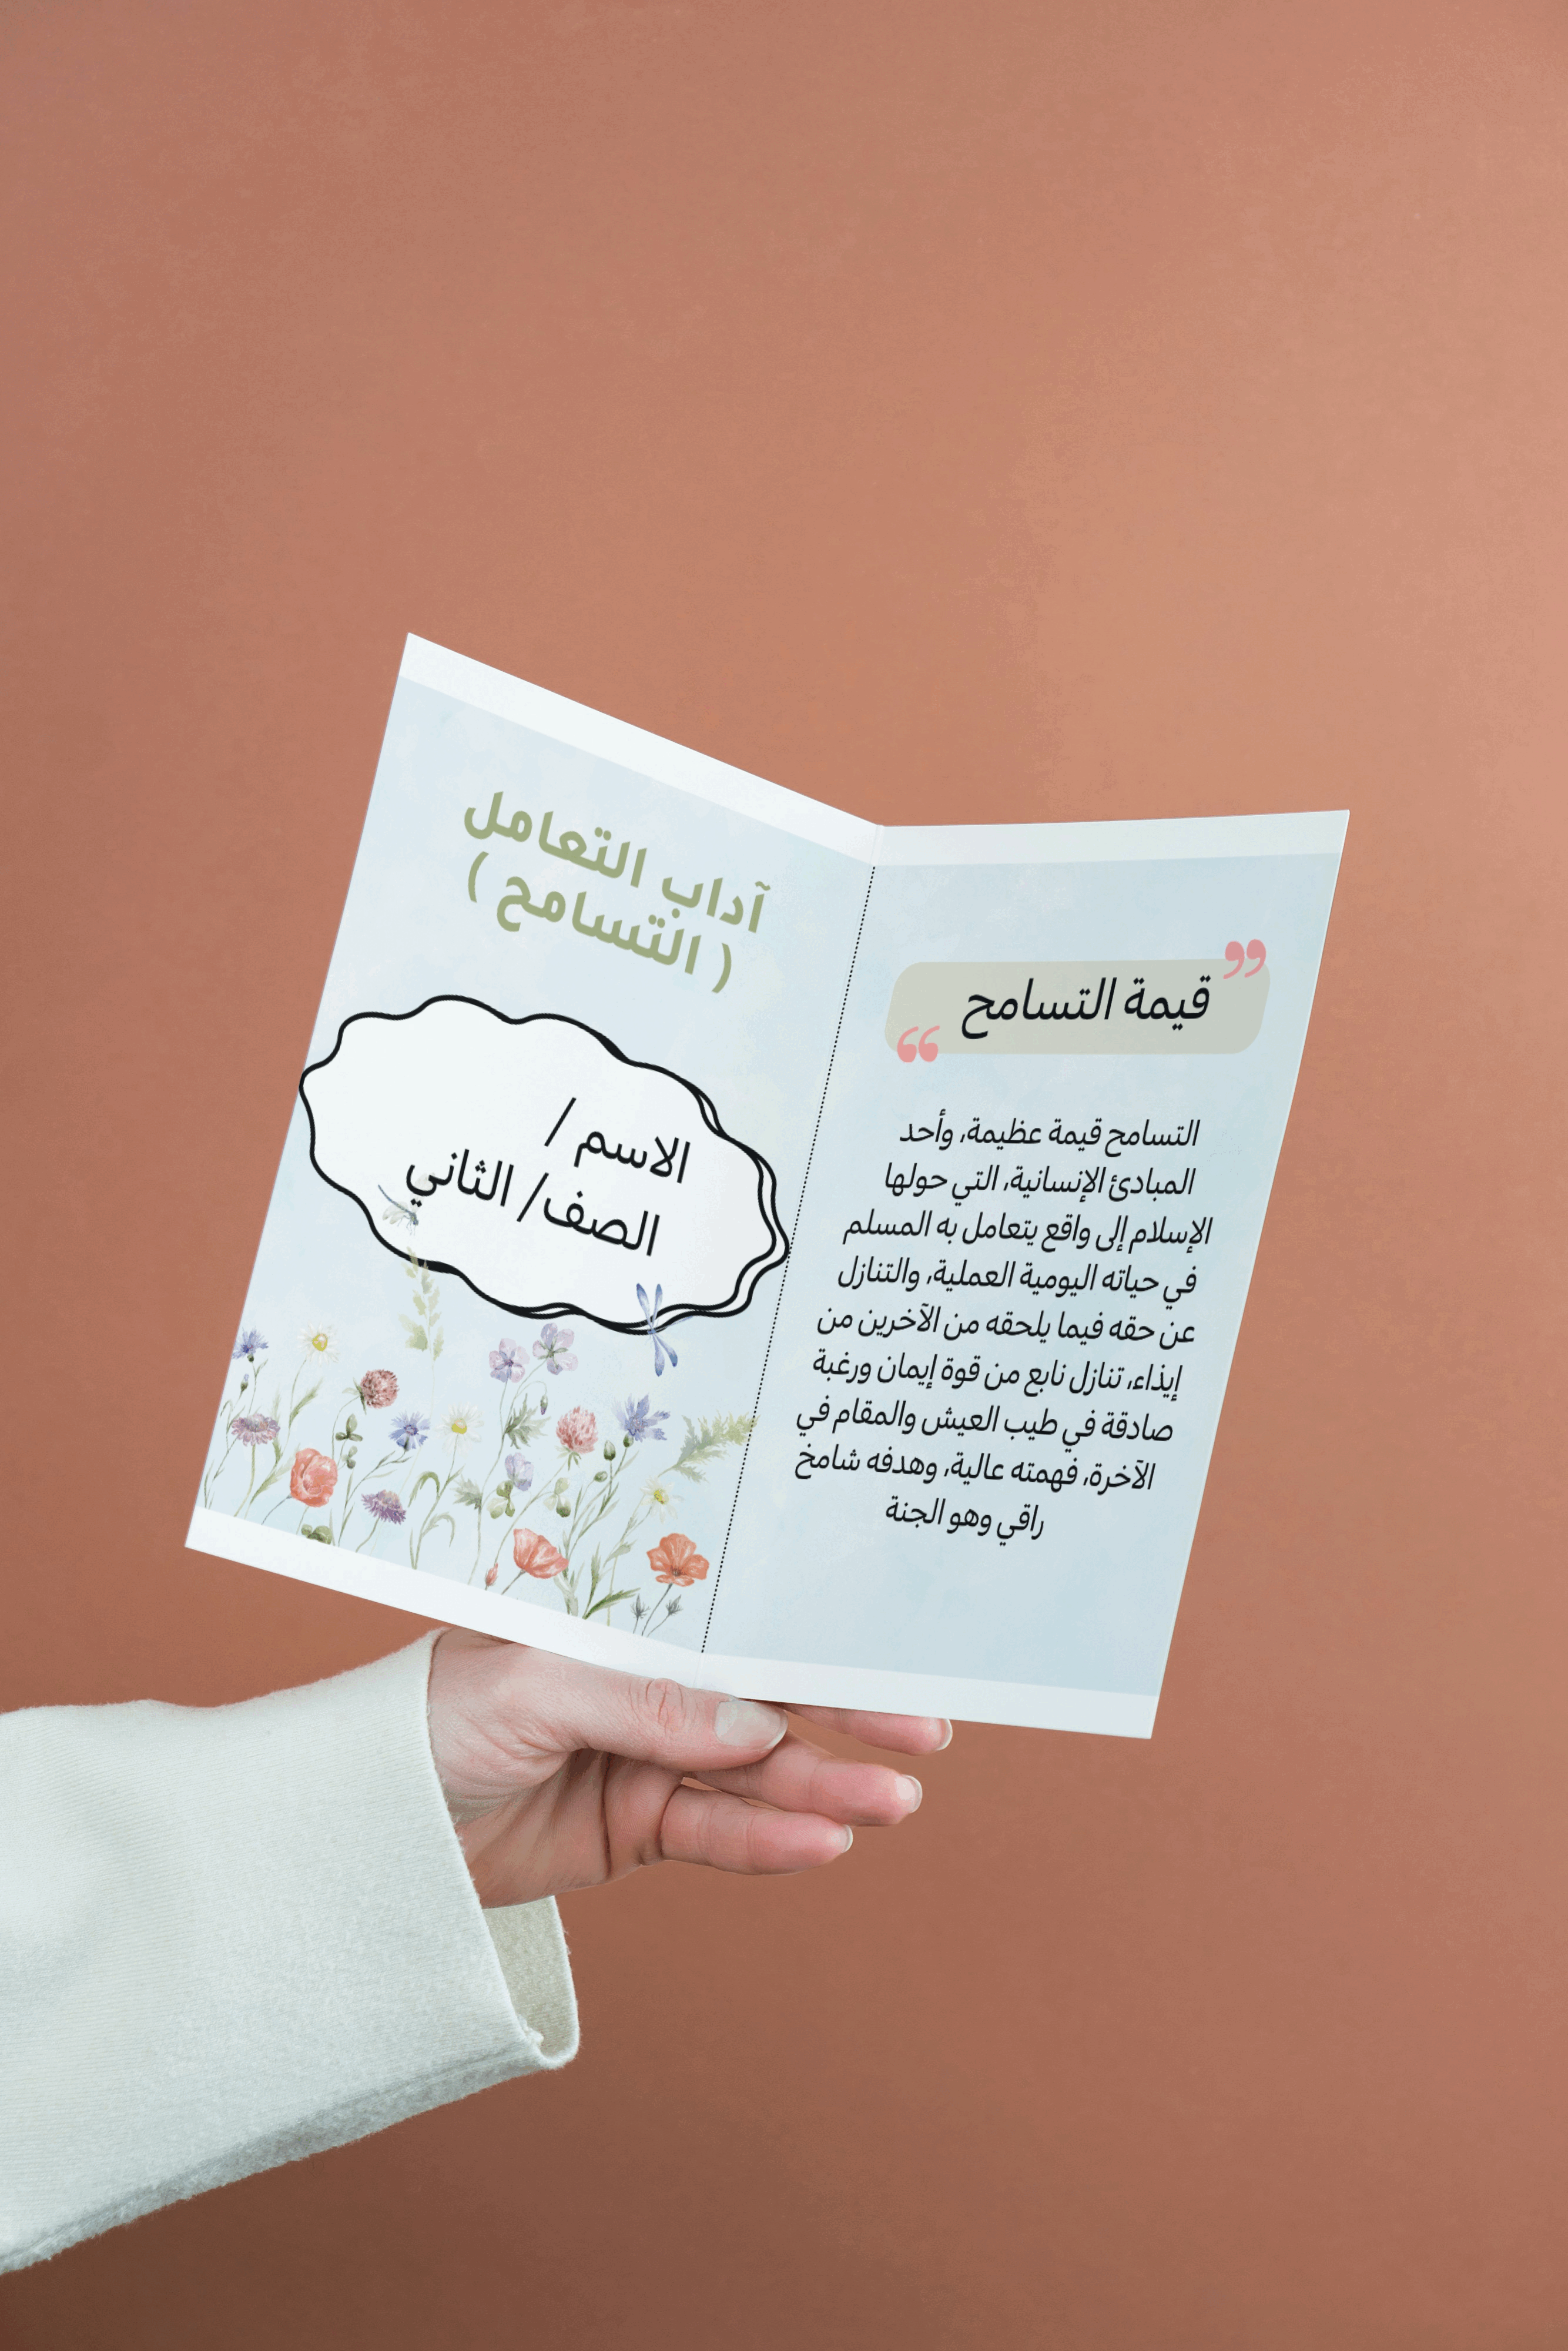 آداب التعامل
( التسامح )
الاسم /
الصف/ الثاني
قيمة التسامح
التسامح قيمة عظيمة، وأحد
المبادئ الإنسانية، التي حولها
الإسلام إلى واقع يتعامل به المسلم
في حياته اليومية العملية، والتنازل
عن حقه فيما يلحقه من الآخرين من
إيذاء، تنازل نابع من قوة إيمان ورغبة
صادقة في طيب العيش والمقام في
الآخرة، فهمته عالية، وهدفه شامخ
راقي وهو الجنة